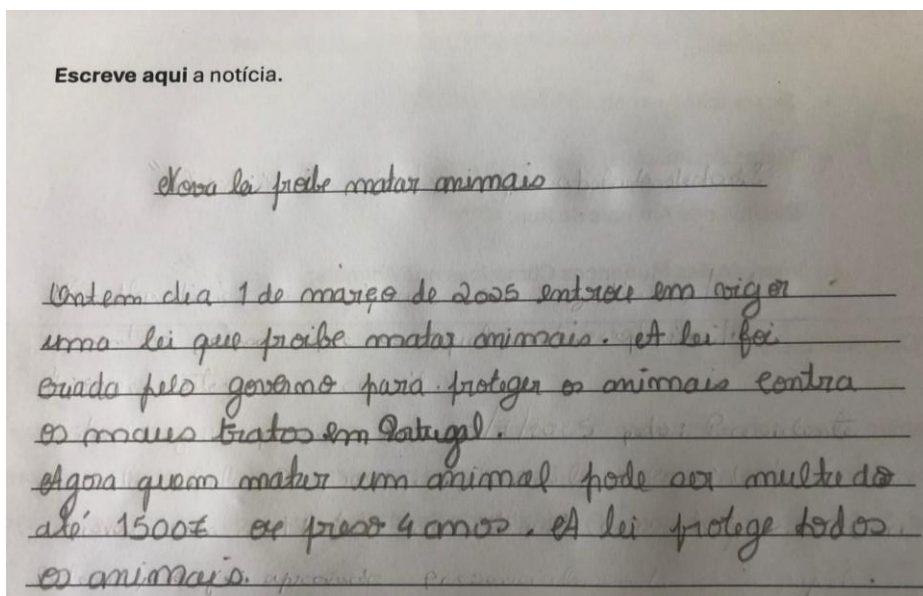 Escreve aqui a notícia.
Nova lei proíbe matar animais
Ontem dia 1 de março de 2025 entrou em vigor
uma lei que proíbe matar animais. A lei foi
criada pelo governo para proteger os animais contra
os maus tratos em Portugal.
Agora quem matar um animal pode ser multado
até 1500€ ou preso 4 anos. A lei protege todos
os animais.